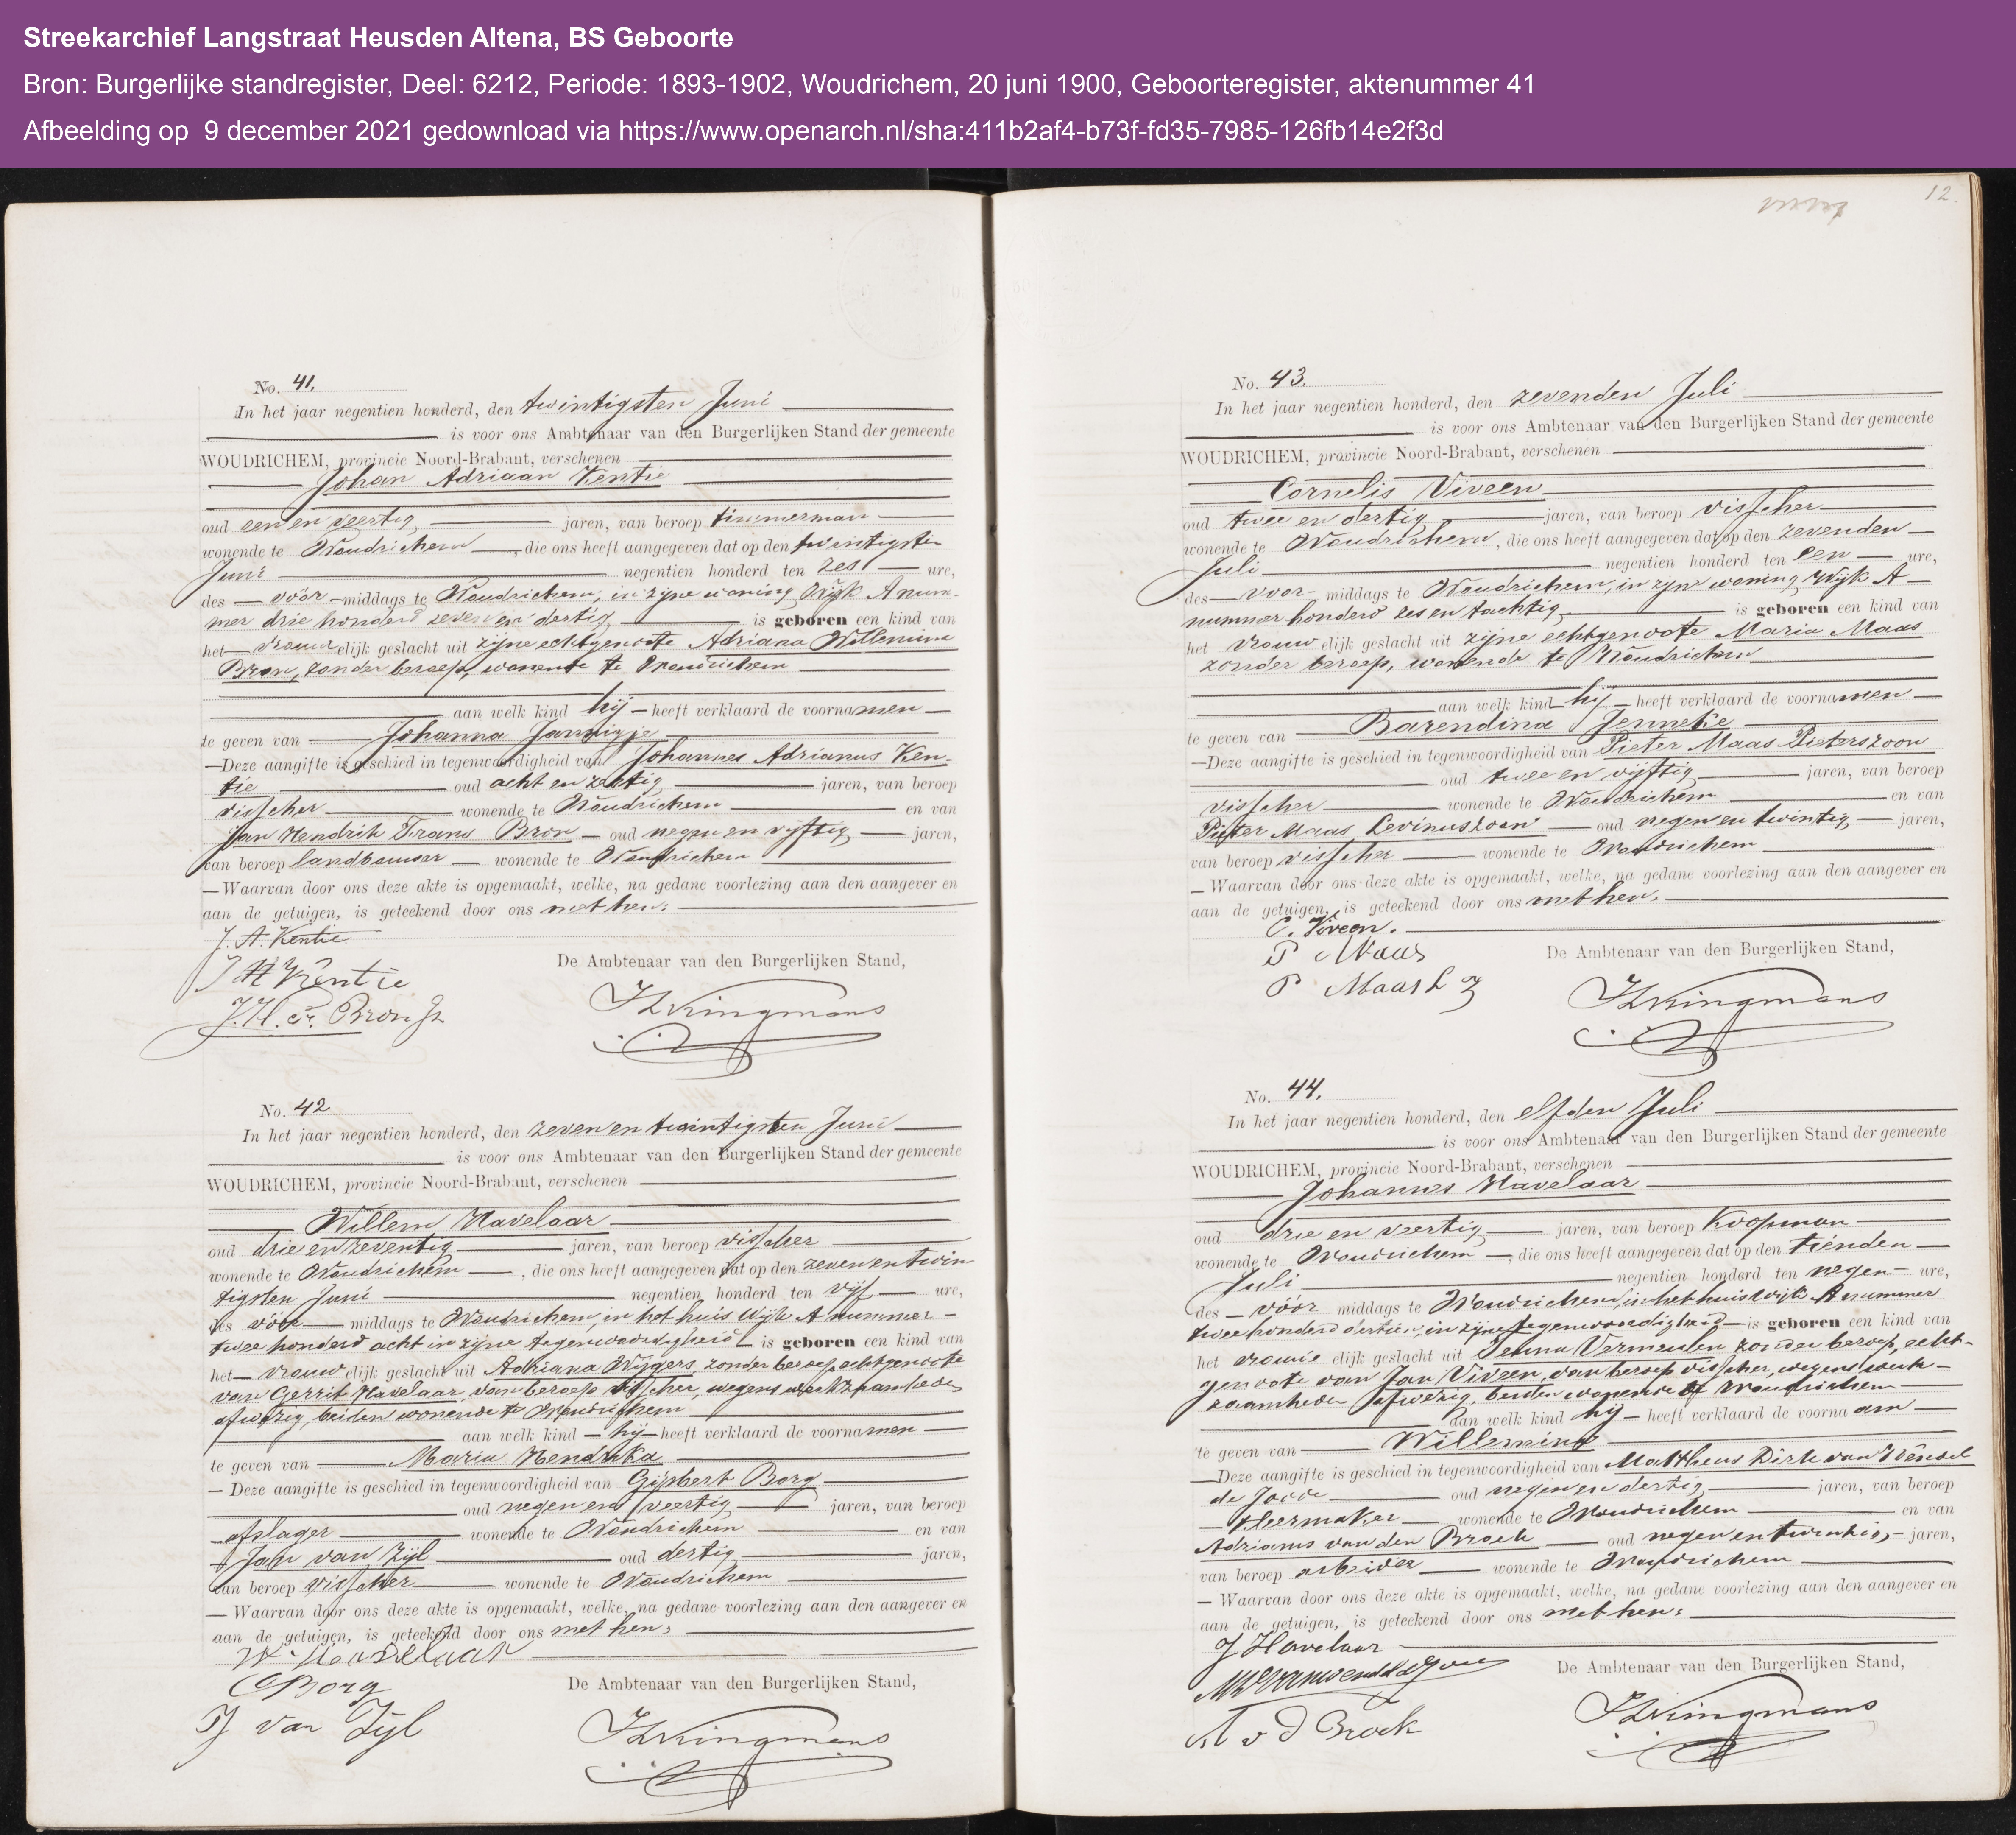 Streekarchief Langstraat Heusden Altena, BS Geboorte
Bron: Burgerlijke standregister, Deel: 6212, Periode: 1893-1902, Woudrichem, 20 juni 1900, Geboorteregister, aktenummer 41
Afbeelding op 9 december 2021 gedownload via https://www.openarch.nl/sha:411b2af4-b73f-fd35-7985-126fb14e2f3d
No. 41.
In het jaar negentien honderd, den twintigsten Juni
is voor ons Ambtenaar van den Burgerlijken Stand der gemeente
WOUDRICHEM, provincie Noord-Brabant, verschenen
Johan Adriaan Kentie
oud een en veertig jaren, van beroep timmerman
wonende te Woudrichem, die ons heeft aangegeven dat op den twintigsten
Juni negentien honderd ten zes ure,
des voor middags te Woudrichem, in zijne woning Wijk A num-
mer drie honderd zeven en dertig is geboren een kind van
het vrouwelijk geslacht uit zijne echtgenoote Adriana Willemina
Bron, zonder beroep, wonende te Woudrichem
aan welk kind hij heeft verklaard de voornamen
te geven van Johanna Jantigje
Deze aangifte is geschied in tegenwoordigheid van Johannes Adrianus Ken-
tie oud acht en zestig jaren, van beroep
visscher wonende te Woudrichem en van
Jan Hendrik Frans Bron oud negen en vijftig jaren,
van beroep landbouwer wonende te Woudrichem
Waarvan door ons deze akte is opgemaakt, welke, na gedane voorlezing aan den aangever en
aan de getuigen, is geteekend door ons met hen.
J. A. Kentie
J A Kentie
J. H. Fr. Bron Jz
De Ambtenaar van den Burgerlijken Stand,
Kingmans
No. 42
In het jaar negentien honderd, den zeven en twintigsten Juni
is voor ons Ambtenaar van den Burgerlijken Stand der gemeente
WOUDRICHEM, provincie Noord-Brabant, verschenen
Willem Havelaar
oud drie en zeventig jaren, van beroep visscher
wonende te Woudrichem, die ons heeft aangegeven dat op den zeven en twin
tigsten Juni negentien honderd ten vijf ure,
des voor middags te Woudrichem, in het huis Wijk A nummer
twee honderd acht in zijne tegenwoordigheid is geboren een kind van
het vrouwelijk geslacht uit Adriana Wijgers zonder beroep echtgenoote
van Gerrit Havelaar, van beroep visscher, wegens werkzaamheden
afwezig, beiden wonende te Woudrichem
aan welk kind hij heeft verklaard de voornamen
te geven van Maria Hendrika
Deze aangifte is geschied in tegenwoordigheid van Gijsbert Borg
oud negen en veertig jaren, van beroep
afslager wonende te Woudrichem en van
Jan van Zijl oud dertig jaren,
van beroep visscher wonende te Woudrichem
Waarvan door ons deze akte is opgemaakt, welke, na gedane voorlezing aan den aangever en
aan de getuigen, is geteekend door ons met hen.
W Havelaar
G Borg
J van Zijl
De Ambtenaar van den Burgerlijken Stand,
Kingmans
12.
No. 43.
In het jaar negentien honderd, den zevenden Juli
is voor ons Ambtenaar van den Burgerlijken Stand der gemeente
WOUDRICHEM, provincie Noord-Brabant, verschenen
Cornelis Viveen
oud twee en dertig jaren, van beroep visscher
wonende te Woudrichem, die ons heeft aangegeven dat op den zevenden
Juli negentien honderd ten een ure,
des voor middags te Woudrichem, in zijne woning Wijk A
nummer honderd zes en tachtig is geboren een kind van
het vrouwelijk geslacht uit zijne echtgenoote Maria Maas
zonder beroep, wonende te Woudrichem
aan welk kind hij heeft verklaard de voornamen
te geven van Barendina Jenneke
Deze aangifte is geschied in tegenwoordigheid van Pieter Maas Pieterszoon
oud twee en vijftig jaren, van beroep
visscher wonende te Woudrichem en van
Pieter Maas Levinuszoon oud negen en twintig jaren,
van beroep visscher wonende te Woudrichem
Waarvan door ons deze akte is opgemaakt, welke, na gedane voorlezing aan den aangever en
aan de getuigen, is geteekend door ons met hen.
C. Viveen.
P Maas
P Maas L z
De Ambtenaar van den Burgerlijken Stand,
Kingmans
No. 44.
In het jaar negentien honderd, den elfden Juli
is voor ons Ambtenaar van den Burgerlijken Stand der gemeente
WOUDRICHEM, provincie Noord-Brabant, verschenen
Johannes Havelaar
oud drie en veertig jaren, van beroep Koopman
wonende te Woudrichem, die ons heeft aangegeven dat op den tienden
Juli negentien honderd ten negen ure,
des vóór middags te Woudrichem, in het huis wijk A nummer
twee honderd dertien, in zijne tegenwoordigheid is geboren een kind van
het vrouwelijk geslacht uit Vermeulen zonder beroep, echt-
genoote van Jan Viveen, van beroep visscher, wegens werk-
zaamheden afwezig, beiden wonende te Woudrichem
aan welk kind hij heeft verklaard de voornaam
te geven van Willemina
Deze aangifte is geschied in tegenwoordigheid van Mattheus Dirk van Wendel
de Joode oud negen en dertig jaren, van beroep
kleermaker wonende te Woudrichem en van
Adrianus van den Broek oud negen en twintig jaren,
van beroep arbeider wonende te Woudrichem
Waarvan door ons deze akte is opgemaakt, welke, na gedane voorlezing aan den aangever en
aan de getuigen, is geteekend door ons met hen.
J Havelaar
A v d Broek
De Ambtenaar van den Burgerlijken Stand,
Kingmans